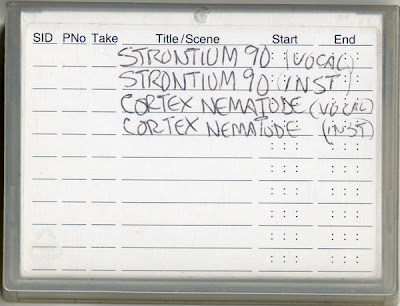 SID PNo Take Title/Scene Start End
STRONTIUM 90 (VOCAL)
STRONTIUM 90 (INST)
CORTEX NEMATODE (VOCAL)
CORTEX NEMATODE (INST)